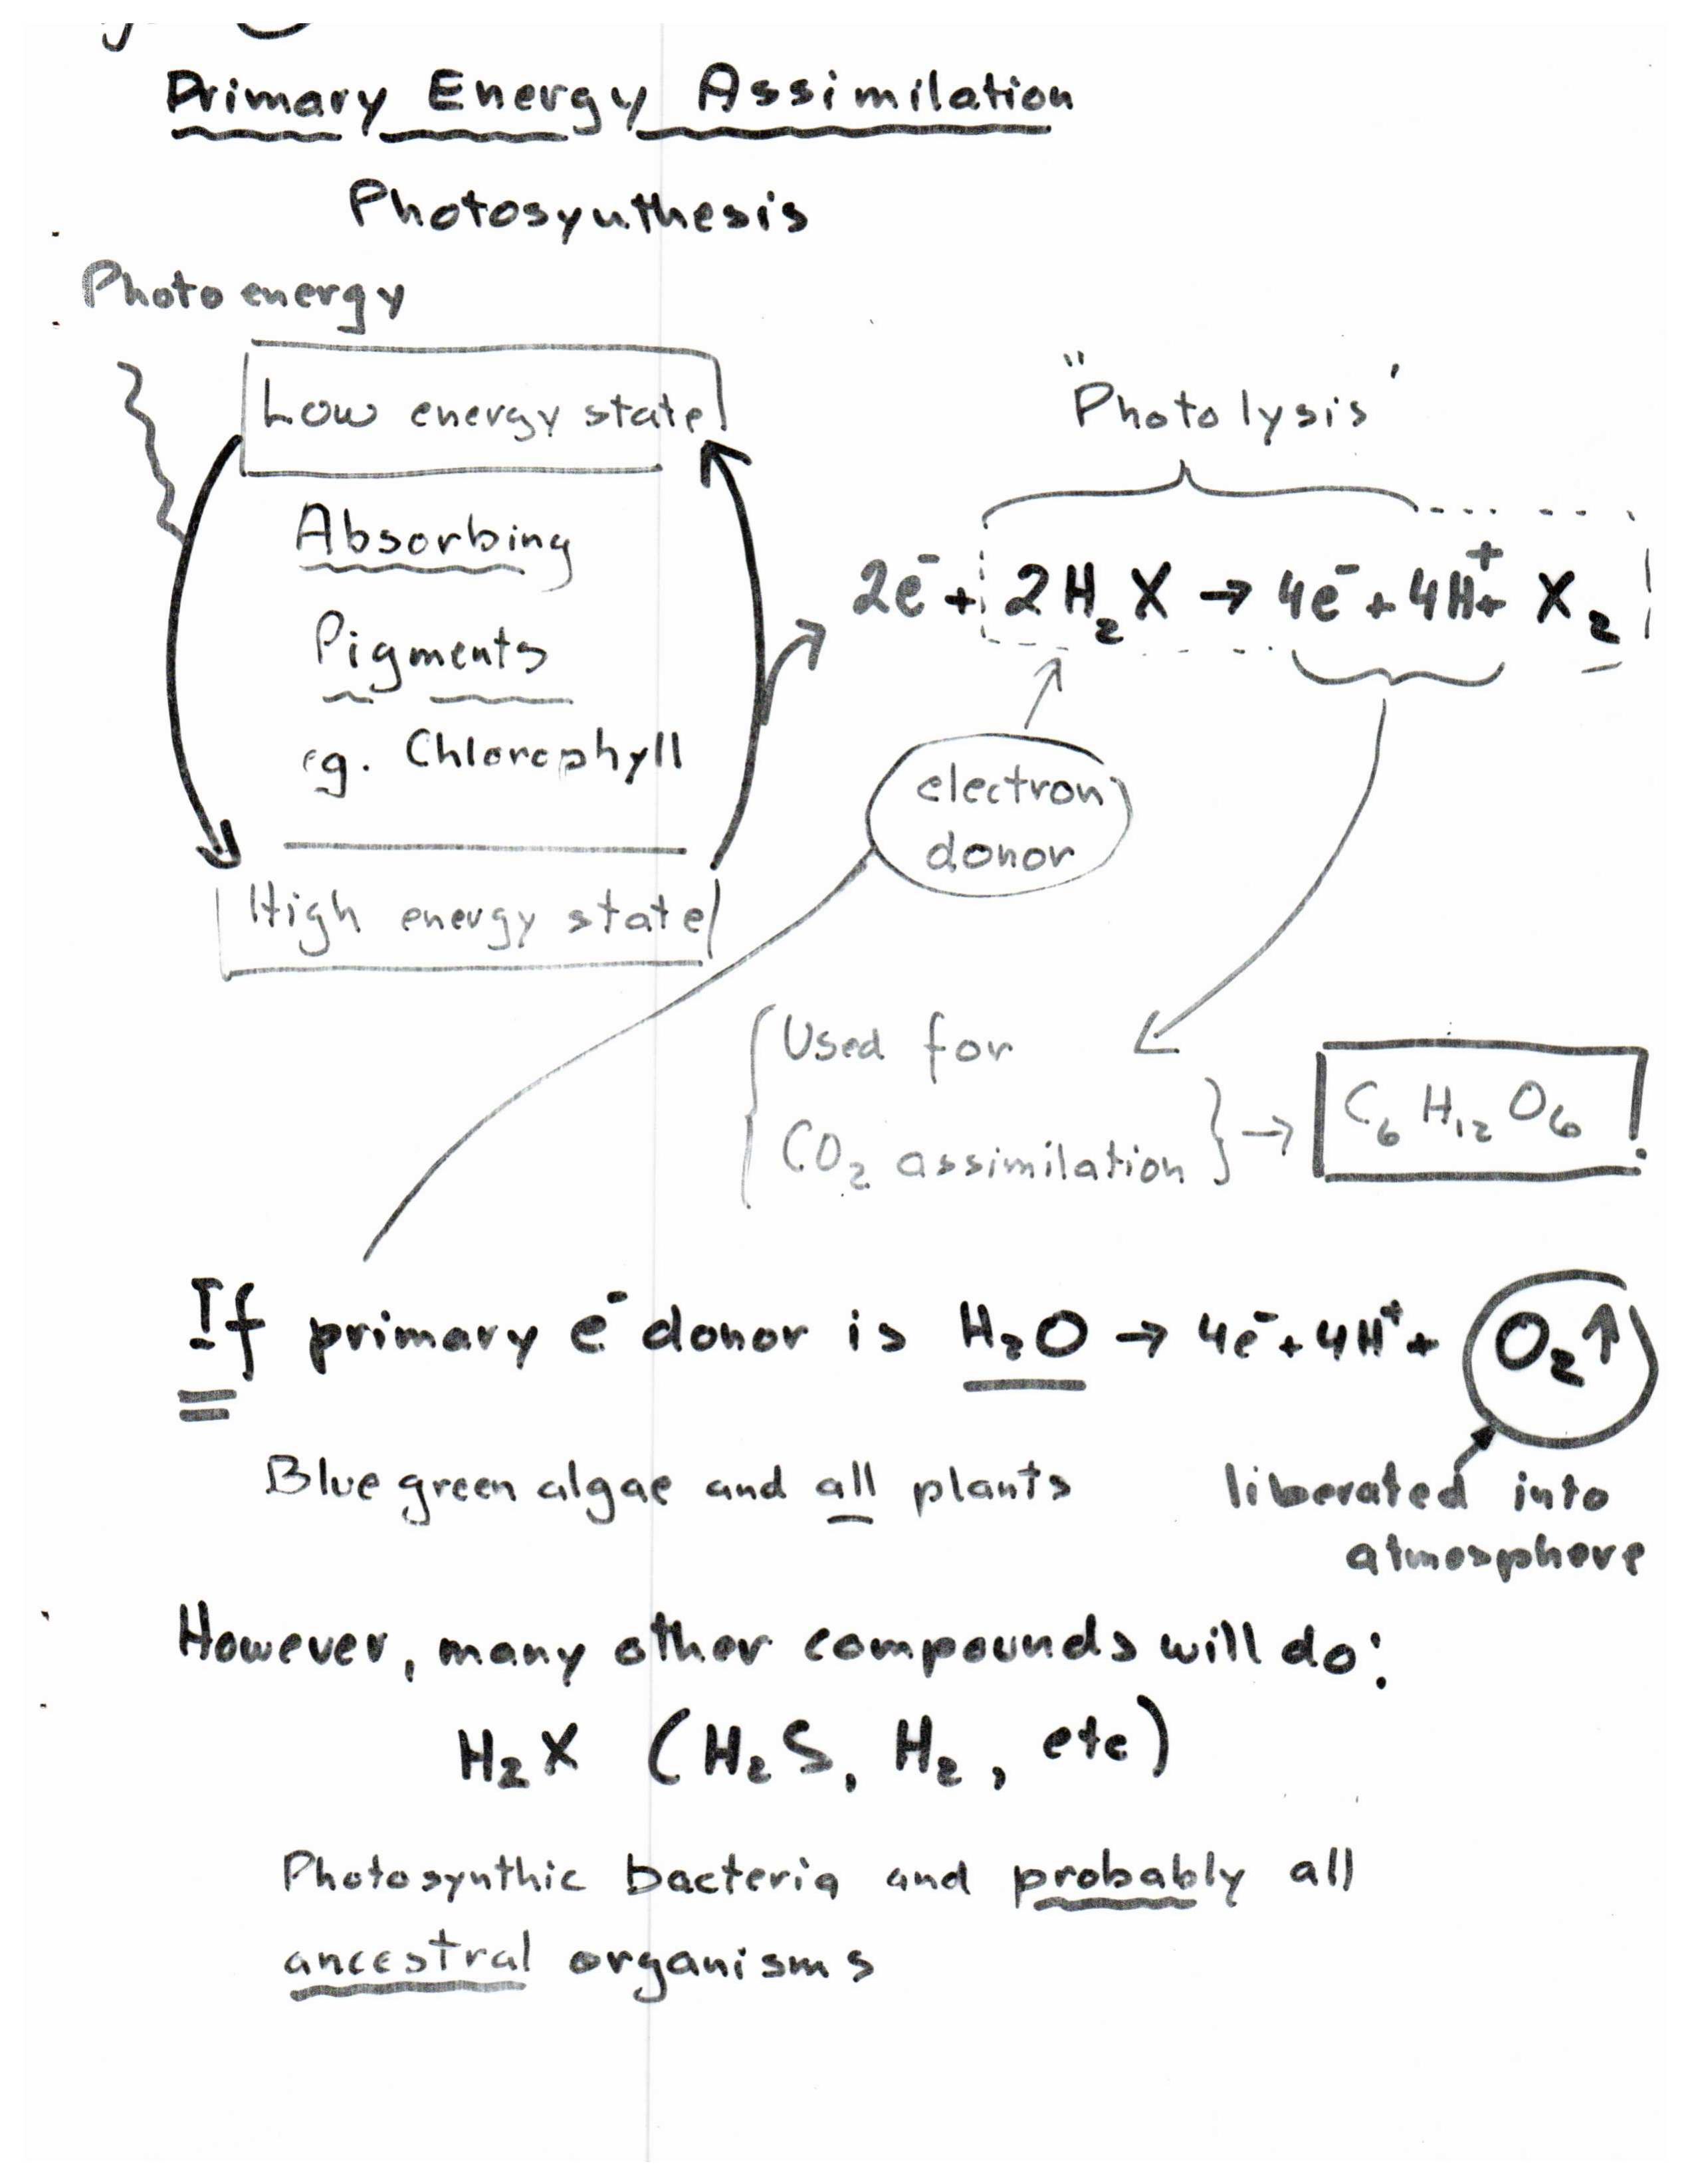 Primary Energy Assimilation
Photosynthesis
Photo energy
Low energy state
Absorbing
Pigments
eg. Chlorophyll
High energy state
"Photolysis'
2e⁻ + 2H₂X → 4e⁻ + 4H⁺ + X₂
electron
donor
Used for
CO₂ assimilation → C₆H₁₂O₆
If primary e⁻ donor is H₂O → 4e⁻ + 4H⁺ + O₂↑
Blue green algae and all plants
liberated into
atmosphere
However, many other compounds will do:
H₂X (H₂S, H₂, etc)
Photosynthic bacteria and probably all
ancestral organisms